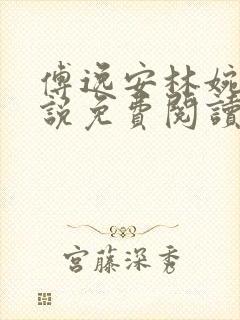 傅逸安林婉
說免費閱讀
宮藤深秀